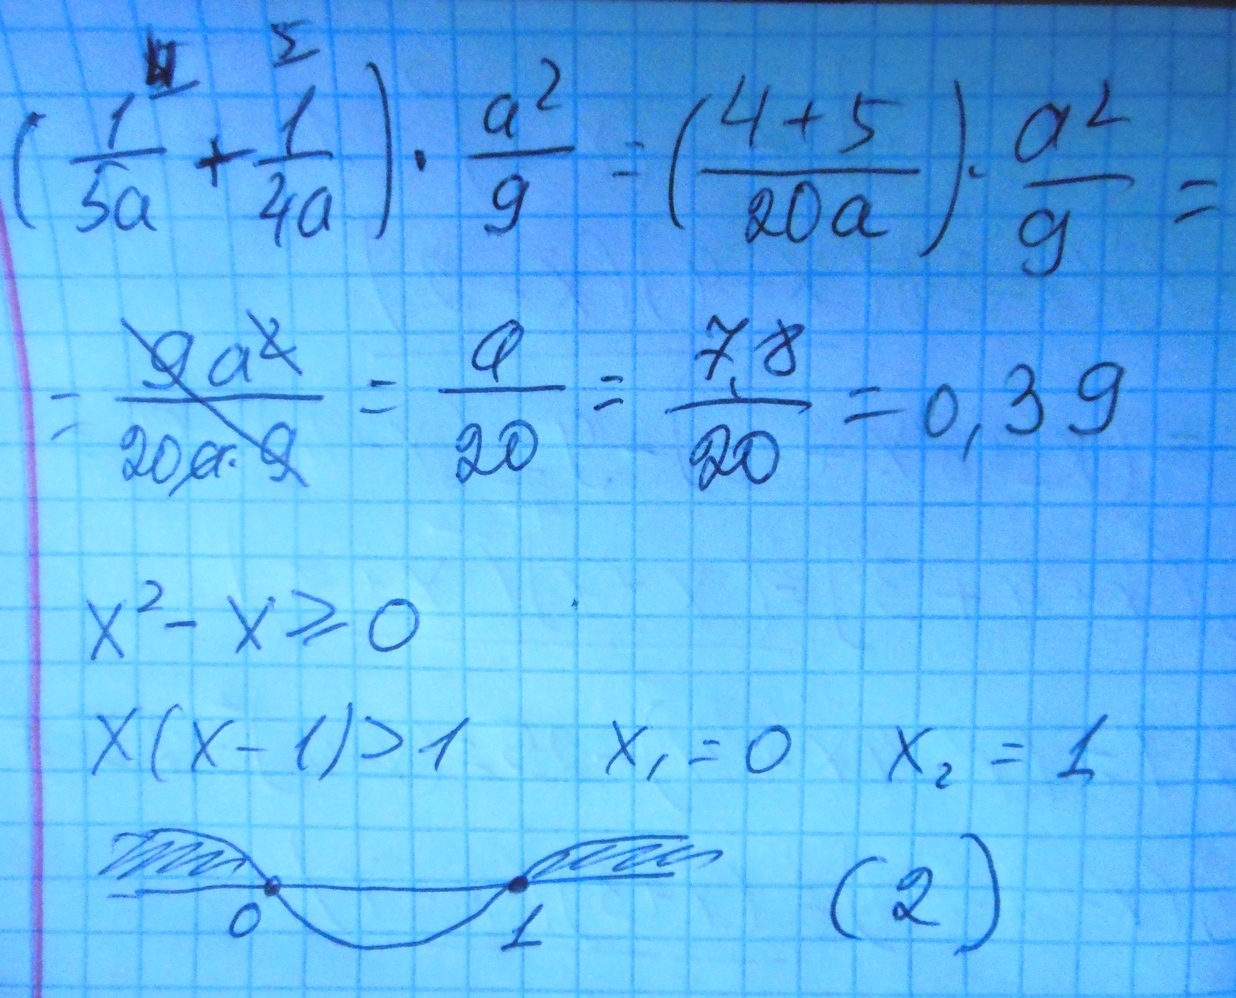 (1/5a + 1/4a) · a²/9 = (4+5/20a) · a²/9 =
= 9a²/20a·9 = a/20 = 7,8/20 = 0,39
x² - x ⩾ 0
x(x-1)>1 x₁ = 0 x₂ = 1
0 1 (2)